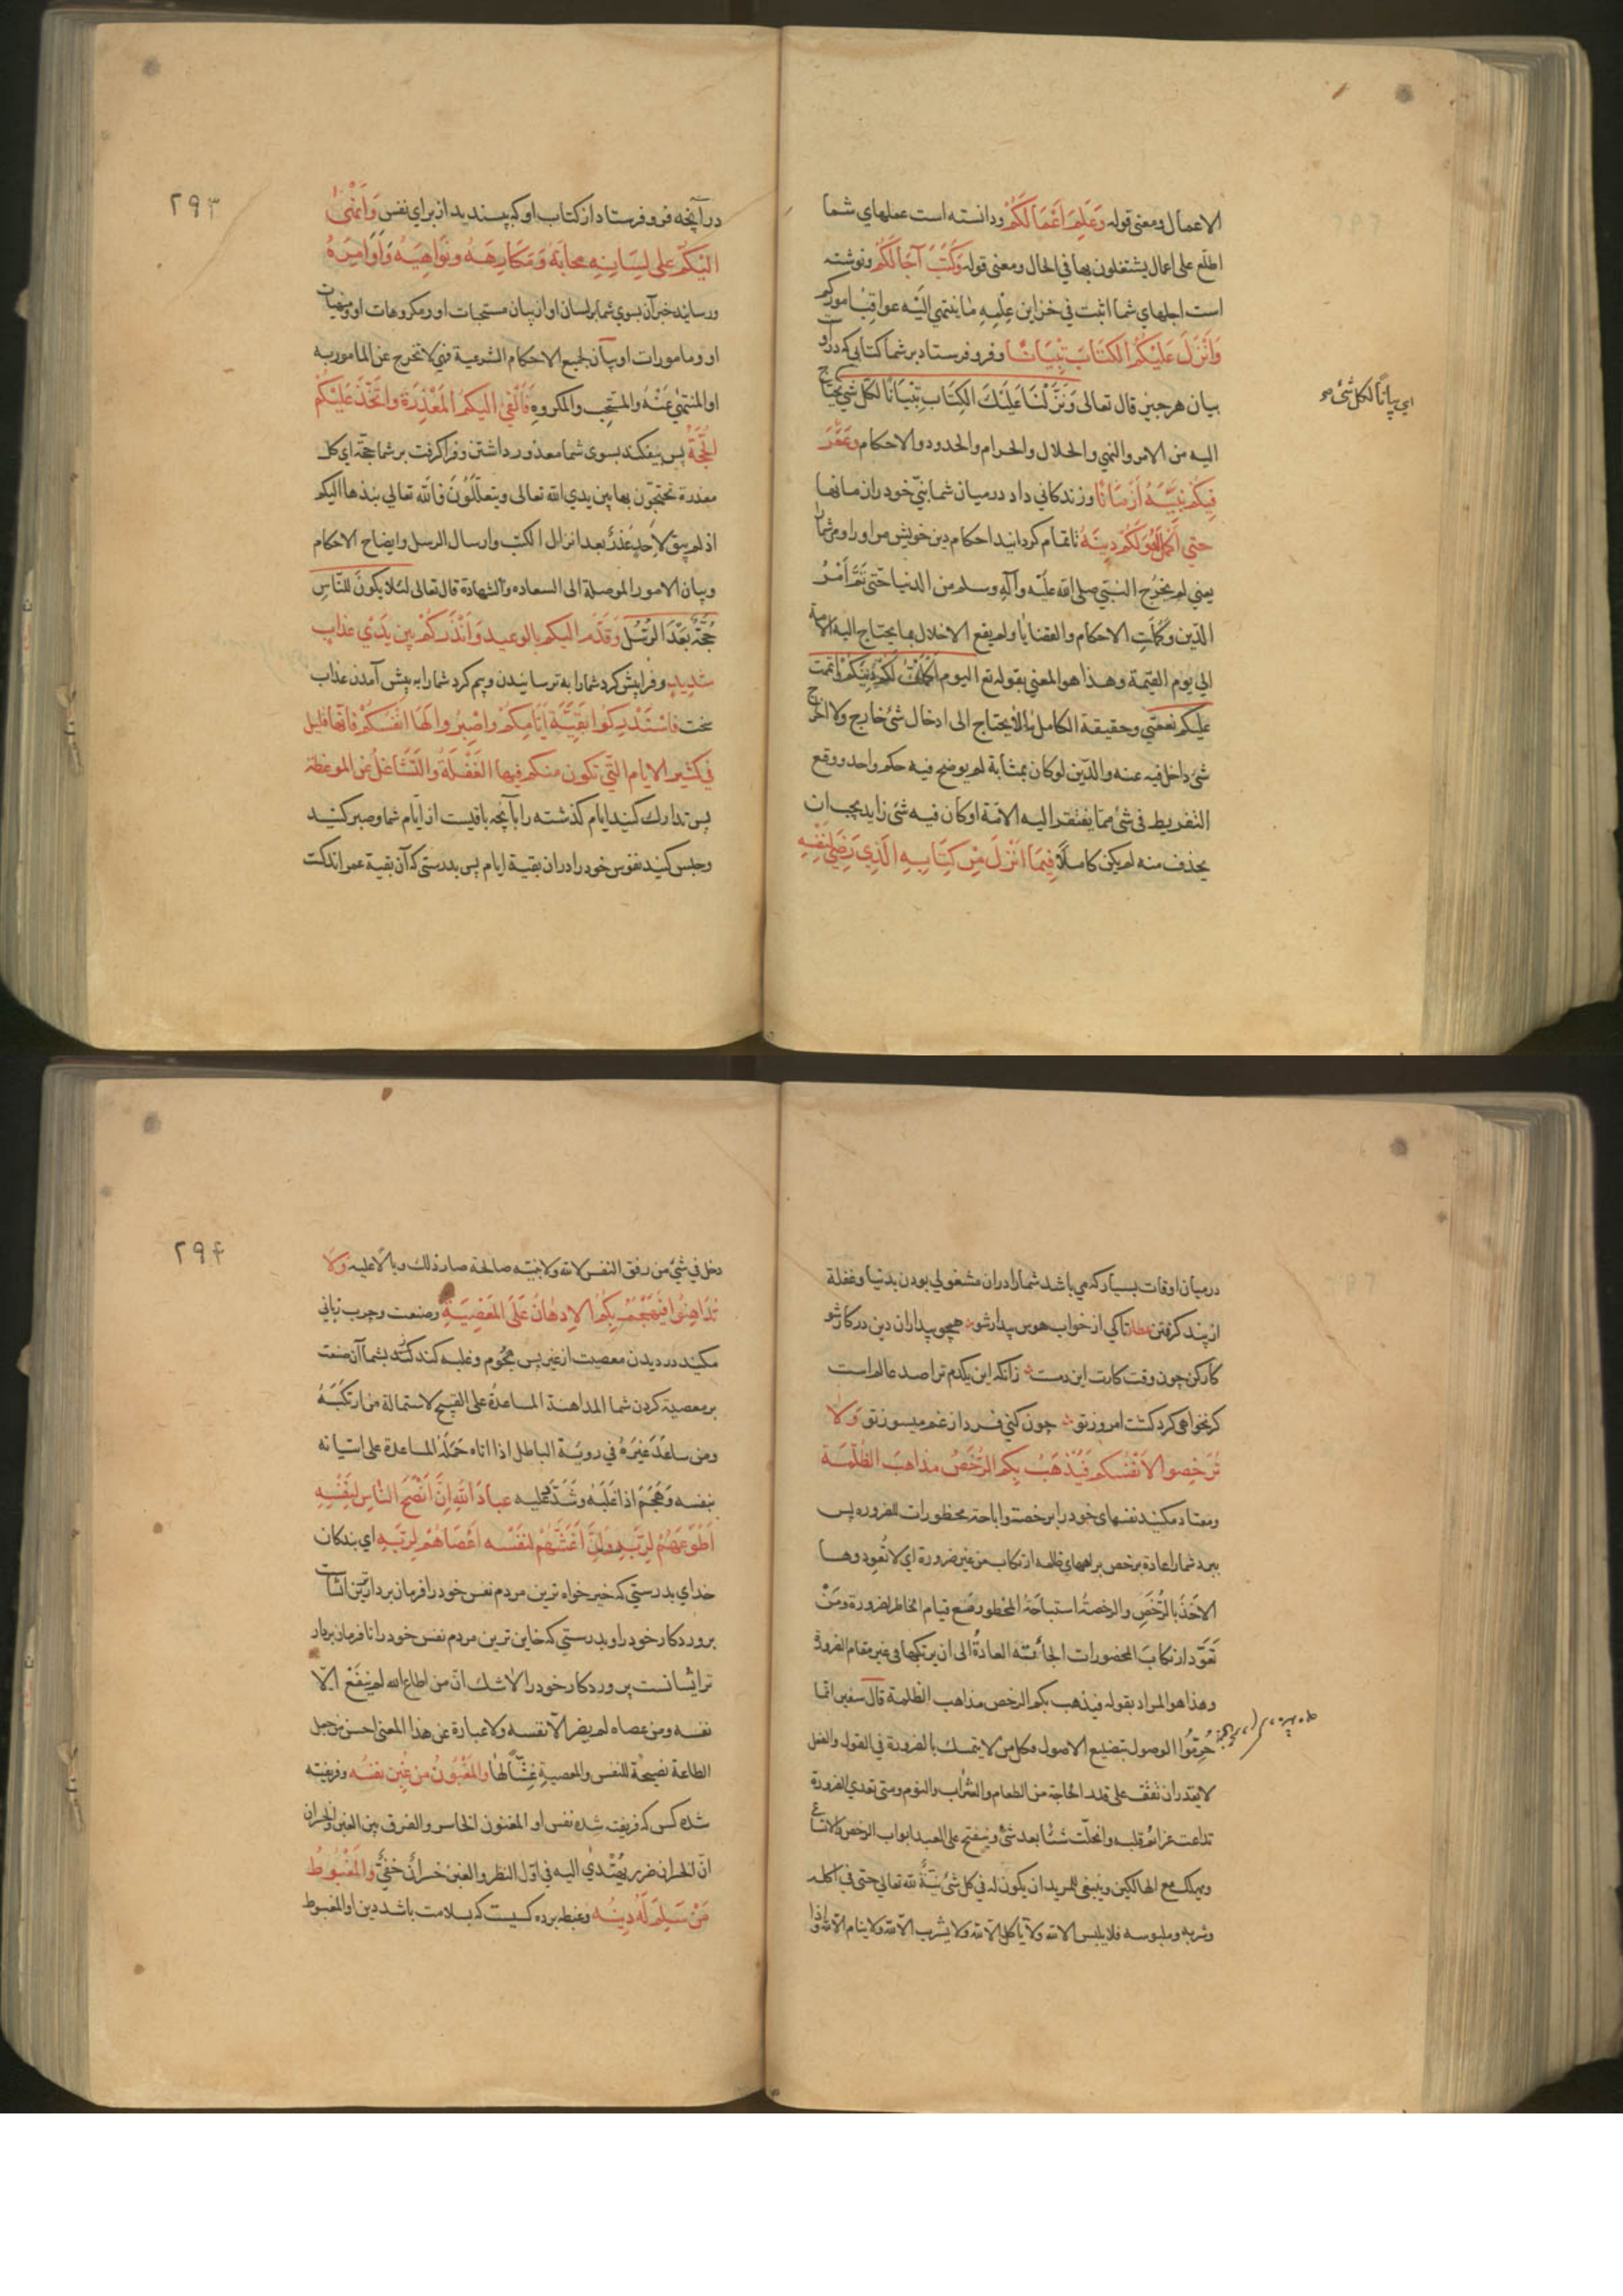 الاعمال ومعنی قوله وَعَلِمَ اَعْمَالَكُمْ ودانسته است عملهای شما
اطلع علی اعمال یشتغلون بها فی الحال ومعنی قوله وَكَتَبَ آجَالَكُمْ ونوشته
است اجلهای شما اثبت فی خزاین عِلْمِهِ مٰا ینتهی اِلَیْه عواقب امورکم
وَاَنْزَلَ عَلَیْكُمُ الكِتَابَ تِبْیَانًا وفرو فرستاد بر شما کتابی که دراو
بیان هر چیز قال تعالی وَنَزَّلْنَا عَلَیْكَ الكِتَابَ تِبْیَانًا لكل شی یحتاج
ای بیانًا لکل شئ
الیه من الامر والنهی والحلال والحرام والحدود والاحکام وعَمَّرَ
فِیكُمْ نَبِیَّهُ اَزْمَانًا وزندکانی داد درمیان شما نبیّ خود را زمانها
حتی اَكْمَلَ لَهُ وَلَكُمْ دِینَهُ تا تمام کردانید احکام دین خویش مر او را ومر شما را
یعنی لم یخرُج النبی صلی الله علیه وآله وسلم من الدنیا حتی تَمَّ اَمْرُ
الدّین وكَمُلَتِ الاحکام والقضایا ولم یقع الاخلال بما یحتاج الیه الامة
الی یوم القیمة وهذا هو المعنی بقوله تع الیوم اَكْمَلْتُ لَكُمْ دِینَكُمْ وَاتممت
علیکم نعمتی وحقیقة الکامل ما لا یحتاج الی ادخال شئ خارج ولا اخراج
شئ داخل فیه عنه والدّین لوکان بمثابة لم یوضح فیه حکم واحد ووقع
التفریط فی شئ مما یفتقر الیه الامّة اوکان فیه شئ زاید یجب ان
یحذف منه لم یکن کاملًا فِیمَا اَنْزَلَ مِنْ كِتَابِهِ الَّذِی رَضِیَ لِنَفْسِهِ
۲۹۳
در آنچه فرو فرستاد از کتاب او که پسندید از برای نفس وَاَنْهٰی
اِلَیْكُمْ عَلی لِسَانِهِ مَحابَّهُ وَمَكَارِهَهُ ونَوَاهِیَهُ وَاَوَامِرَهُ
ورسانید خبر آن بسوی شما بر لسان او از بیان مستحبات او ومکروهات او ومنهیات
او ومامورات او بیان لجمیع الاحکام الشرعیة فهی لا تخرج عن المامور به
او المنتهیٰ عَنْهُ والمستحِب والمکروه فَاَلْقیٰ اِلَیكم المَعْذِرَةَ وَاتَّخَذَ عَلَیْكُمْ
الْحُجَّةَ پس بیفکند بسوی شما معذور داشتن وفرا کرفت بر شما حجّة ای کل
معذرة تحتجّون بها بین یدی الله تعالی ویتعلّلُوْنَ فاللّه تعالی نبذها الیکم
اذ لم یبق لاِحدٍ عُذْرٌ بعد انزال الکتب وارسال الرسل وایضاح الاحکام
وبیان الامور الموصلة الی السعاده والشهادة قال تعالی لئلا یكونَ للنّاسِ
حُجَّةٌ بَعْدَ الرُّسُل وَقَدَّمَ الیكم بالوعید وَاَنْذَرَكُمْ بین یَدَیْ عذاب
شدید وفراپیش کرد شما را به ترسانیدن وبیم کرد شما را به پیش آمدن عذاب
سخت فاسْتَدْرِكُوا بَقِیَّةَ اَیّامِكُمْ واصْبِرُوا لَهَا اَنْفُسَكُمْ فَاِنَّهَا قلیل
فی كثیر الایام الّتی تكون منكم فیها الغَفْلَةُ وَالتَّشَاغُلُ عَن الموعظة
پس تدارک کنید ایام کذشته را بآنچه باقیست از ایّام شما وصبر کنید
وحبس کنید نفوس خود را دران بقیة ایام پس بدرستی که آن بقیة عمر اندکست
درمیان اوقات بسیار که می باشد شما را دران مشغولی بودن بدنیا وغفلة
از پند کرفتن عطار تا کی از خواب هوس بیدار شو همچو بیداران دین درکار شو
کار کن چون وقت کارت این دمست زانکه این یکدم ترا صد عالم است
کر نخواهی کرد کشت امروز تو چون کنی فردا ز غم میسوز تو وَلا
تُرَخِّصوا لاَنْفُسِكم فَیَذْهَبُ بِكم الرُّخَصُ مذاهبَ الظُّلَمَة
ومعتاد مکنید نفسهای خود را برخصت واباحة محظورات للضرورة پس
ببرد شما را عادة برخص براههای ظلمه ارتکاب من غیر ضرورة ای لا تُعودوها
الاخذَ بالرُّخَصِ والرخصةُ استباحَةُ المحظور مَعَ قیام الخاطر لضرورة ومَنْ
تَعَوَّد ارتکابَ المحضورات الجأتْه العادةُ الی ان یرتکبها فی غیر مقام الضرورة
وهذا هو المراد بقوله فیذهب بکم الرخص مذاهب الظلمة قال سفین انّما
حُرِمُوا الوصول بتضییع الاصول فکل من لا یتمسک بالضرورة فی القول والفعل
لا یقدر ان یَقِفَ علی قدر الحاجة من الطعام والشراب والنوم ومتی تعدی الضرورة
تداعت عزائم قلبه وانحلّت شیئًا بعد شئ وینفتح علی العبد ابواب الرخص والاتساع
ویهلک مع الهالکین وینبغی للمرید ان یکون له فی کل شئ نیَّةٌ لله تعالی حتی فی اکله
وشربه وملبوسه فلا یلبس الا لله ولا یأکل الّا لله ولا یشرب الّا لله ولا ینام الّا لله واذا
۲۹۴
دخل فی شئ من رفق النفس لا لله ولا بنیّة صالحة صار ذلک وبالًا علیه وَلا
تُدَاهِنُوا فَیَهْجُمَ بِكُمُ الاِدهَانُ عَلَی المَعْصِیَةِ وصنعت وچرب زبانی
مکنید در دیدن معصیت از غیر پس هجُوم وغلبه کند کننده بشما آن صنعت
بر معصیة کردن شما المداهنة المساعدةُ علی القبیح لاستمالة من ارتکَبَهُ
ومن ساعَدَ غَیْرَهُ فی رویَة الباطل اذا اتاه حَمَلَهُ المساعدة علی اتیانه
بنفسه وَهَجَمَ اذا غَلَبَهُ وشَدَّ علیه عبادَ اللهِ اِنَّ اَنْصَحَ النّاسِ لِنَفْسِهِ
اَطْوَعُهُمْ لِرَبِّهِ وَاِنَّ اَغَشَّهُمْ لنَفْسه اَعْصَاهُمْ لِرَبِّهِ ای بندکان
خدای بدرستی که خیر خواه ترین مردم نفس خود را فرمان بردار ترین ایشانست
پروردکار خود را وبدرستی که خاین ترین مردم نفس خود را نا فرمان بردار
تر ایشانست پروردکار خود را لاشک انّ من اطاع الله لم ینفَعْ الّا
نفسه ومن عصاه لم یضر الّا نفسه ولا عبارة عن هذا المعنی احسن من جعل
الطاعة نصیحةً للنفس والمعصیةِ غِشًّا لها والمَغْبُونُ من غُبِن نفسُه وفریفته
شده کس که فریفته شده نفس او المغبون الخاسر والفرق بین الغبن والخسران
انّ الخسران ضرر یُهْتدیٰ الیه فی اوّل النظر والغبن خسرانٌ خفیٌّ والمَغْبُوطُ
مَنْ سَلِمَ لَهُ دِینُه وغبطه برده کسیست که بسلامت باشد دین او المغبوط